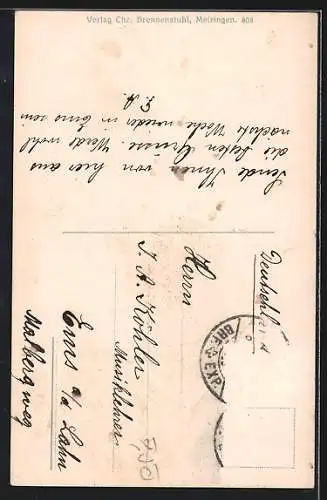 Verlag Chr. Brennenstuhl, Meiringen. 408
Sende Ihnen von hier aus
die besten Grüsse. Werde wohl
nächste Woche wieder in Ems sein
Deutschland
Herrn
J. A. Köhler
Musiklehrer
Ems a/d Lahn
Malbergweg
BRF. EXP.